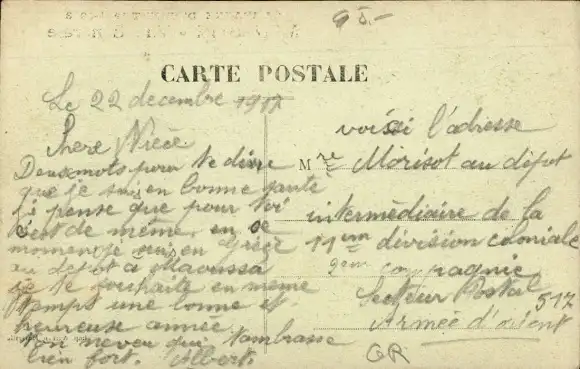 95.-
CARTE POSTALE
Le 22 decembre 1917
chere Niece
Deux mots pour te dire
que je sui en bonne sante
je pense que pour toi
cest de même en se
moment je suis en Grèce
au depot a Naoussa
je te souhaite en meme
temps une bonne et
heureuse année
ton neveu qui tambrasse
bien fort. Albert.
voisi l'adresse
Mre Morisot au dépot
intermèdiaire de la
11em division coloniale
2em compagnie
Secteur Postal
517
Armée d'orient
QR